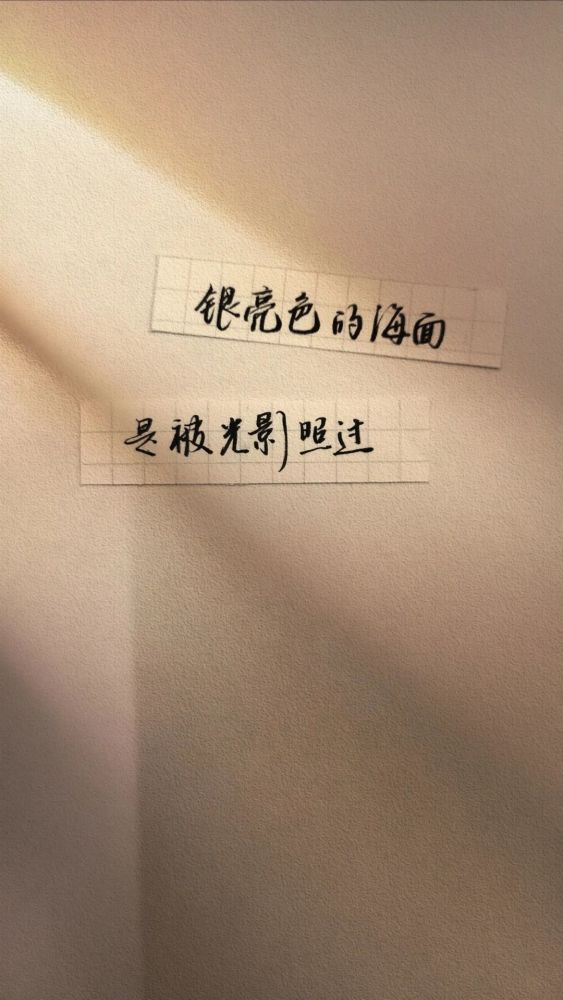 银亮色的海面
是被光影照过